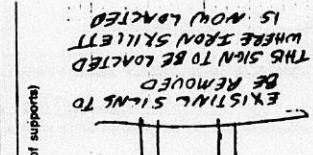 EXISTING SIGNS TO
BE REMOVED
THIS SIGN TO BE LOACTED
WHERE IRON SKILLETT
IS NOW LOACTED
of supports)